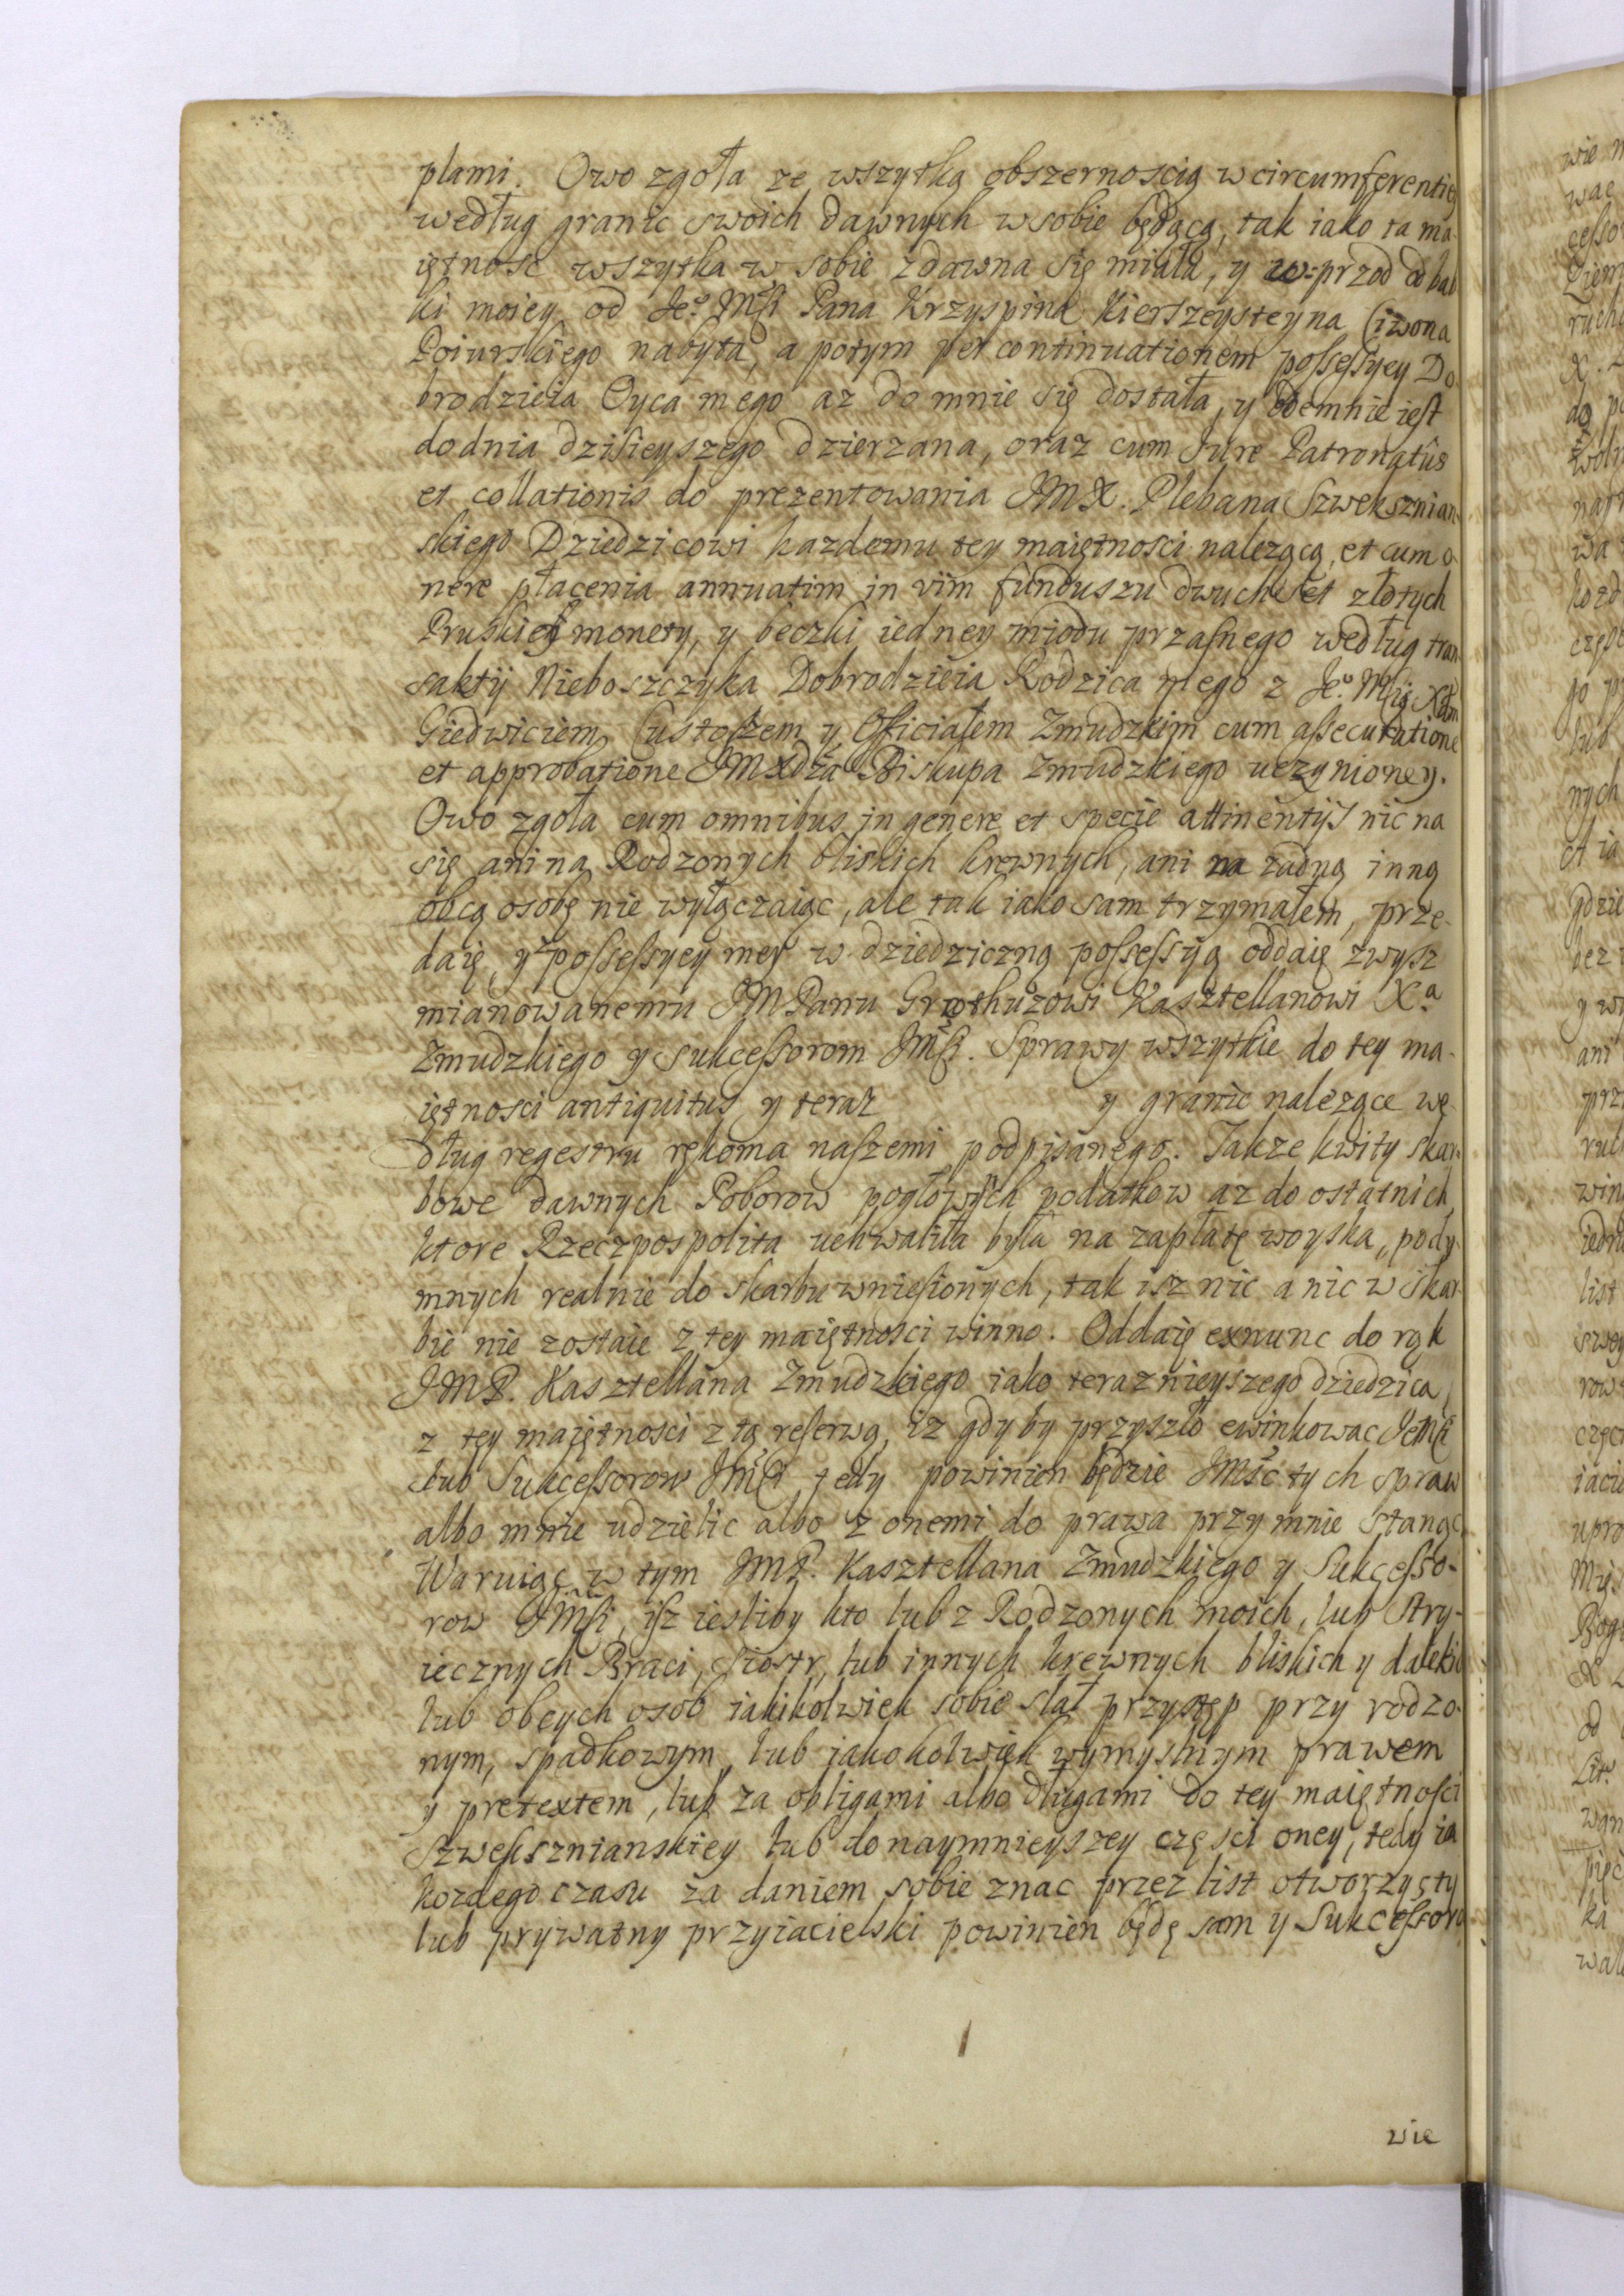 plami. Owo zgoła ze wszytką obszernoscią w circumferentię
według granic swoich dawnych w sobie będącą, tak iako ta ma
iętnosc wszytka w sobie zdawna się miała, y w=przod od bab
ki moiey od Je.º Mśći Pana Krzyspina Kierszeysteyna Ciwona
Poiurskiego nabyta, a potym per continuationem possessyey Do
brodzieia Oyca mego az do mnie się dostała, y odemnie iest
do dnia dzisieyszego dzierzana, oraz cum Jure Patronatûs
et collationis do prezentowania JMX. Plebana Szwekznian
skiego Dziedzicowi kazdemu tey maiętnosci nalezącą, et cum o
nere płacenia annuatim in vim funduszu dwuchset złotych
Pruskiey monety, y beczki iedney miodu przasnego według tran
sakty Nieboszczyka Dobrodzieia Rodzica mego z Je.º Mśćią Xdzem
Giedwiciem Custoszem y Officiałem Zmudzkim cum assecuratione
et approbatione JMXdza Biskupa Zmudzkiego uczynioney.
Owo zgoła cum omnibus in genere et specie attinentijs nic na
się ani na Rodzonych bliskich krewnych, ani na żadną inną
obcą osobę nie wyłączaiąc, ale tak iako sam trzymałem, prze-
daię, y z possessyey mey w dziedziczną possessyą oddaię zwysz
mianowanemu JMPanu Grothuzowi Kasztellanowi Xa
Zmudzkiego y sukcessorom JMśći. Sprawy wszytkie do tey ma-
iętnosci antiquitus y teraz y granic nalezące we-
dług regestru rękoma naszemi podpisanego. Takze kwity skar
bowe dawnych Poborow pogłowych podatkow az do ostatnich
ktore Rzeczpospolita uchwaliła była na zapłatę woyska, pody
mnych realnie do skarbu wniesionych, tak isz nic a nic w skar
bie nie zostaie z tey maiętnosci winno. Oddaię exnunc do rąk
JMP. Kasztellana Zmudzkiego iako teraznieyszego dziedzica
z tey maiętnosci z tą reserwą, iz gdyby przyszło ewinkowac JeMśći
lub Sukcessorow JMśći, tedy powinien będzie JMść tych spraw
albo mnie udzielic albo z onemi do prawa przy mnie stanąc
Waruiąc w tym JMP. Kasztellana Zmudzkiego y Sukcesso-
row JMśći, isz iesliby kto lub z Rodzonych moich, lub Stry-
iecznych Braci, Siostr, lub innych krewnych bliskich y dalekich
lub obcych osob iakikolwiek sobie słał przystęp przy rodzo-
nym, spadkowym, lub iakokolwiek wymyslnym prawem
y pretextem, lub za obligami albo długami do tey maiętnosci
Szwekznianskiey lub do naymnieyszey częsci oney, tedy ia
kozdego czasu za daniem sobie znac przez list otworzysty
lub prywatny przyiacielski powinien będę sam y Sukcessoro
wie